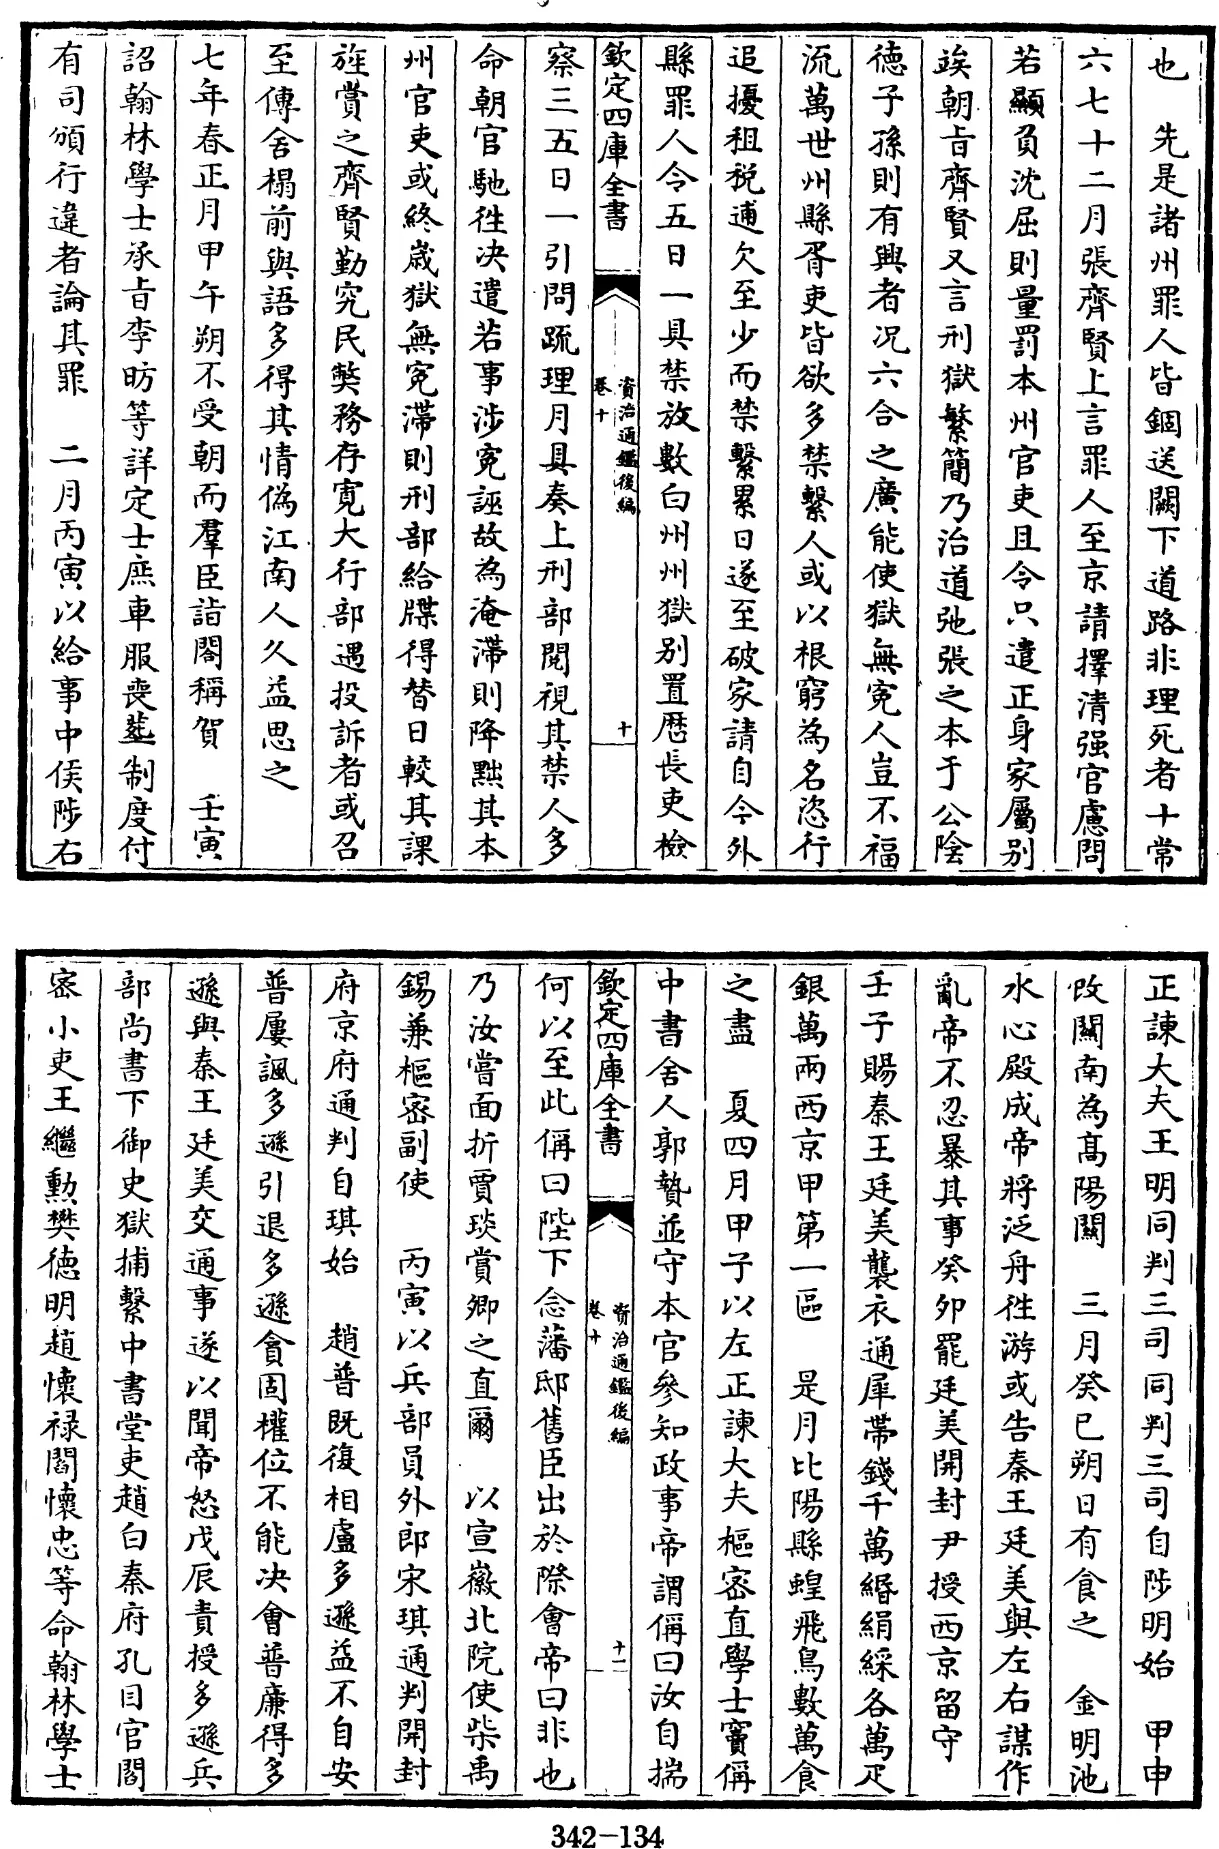 也　先是諸州罪人皆錮送闕下道路非理死者十常
六七十二月張齊賢上言罪人至京請擇清强官慮問
若顯負沈屈則量罰本州官吏且令只遣正身家屬别
竢朝㫖齊賢又言刑獄繁簡乃治道弛張之本于公陰
徳子孫則有興者况六合之廣能使獄無寃人豈不福
流萬世州縣胥吏皆欲多禁繫人或以根窮為名恣行
追擾租税逋欠至少而禁繫累日遂至破家請自今外
縣罪人令五日一具禁放數白州州獄别置厯長吏檢
欽定四庫全書
資治通鑑後編
卷十
十
察三五日一引問疏理月具奏上刑部閲視其禁人多
命朝官馳徃决遣若事涉寃誣故為淹滯則降黜其本
州官吏或終歲獄無寃滯則刑部給牒得替日較其課
旌賞之齊賢勤究民弊務存寛大行部遇投訴者或召
至傳舍榻前與語多得其情偽江南人久益思之
七年春正月甲午朔不受朝而羣臣詣閤稱賀　壬寅
詔翰林學士承㫖李昉等詳定士庶車服喪塟制度付
有司頒行違者論其罪　二月丙寅以給事中侯陟右
正諫大夫王明同判三司同判三司自陟明始　甲申
改關南為高陽關　三月癸巳朔日有食之　金明池
水心殿成帝將泛舟徃游或告秦王廷美與左右謀作
亂帝不忍暴其事癸夘罷廷美開封尹授西京留守
壬子賜秦王廷美襲衣通犀帶錢千萬緡絹綵各萬疋
銀萬兩西京甲第一區　是月比陽縣蝗飛鳥數萬食
之盡　夏四月甲子以左正諫大夫樞宻直學士竇偁
中書舍人郭贄並守本官參知政事帝謂偁曰汝自揣
欽定四庫全書
資治通鑑後編
卷十
十一
何以至此偁曰陛下念藩邸舊臣出於際會帝曰非也
乃汝嘗面折賈琰賞卿之直爾　以宣徽北院使柴禹
錫兼樞宻副使　丙寅以兵部員外郎宋琪通判開封
府京府通判自琪始　趙普既復相盧多遜益不自安
普屢諷多遜引退多遜貪固權位不能决會普廉得多
遜與秦王廷美交通事遂以聞帝怒戊辰責授多遜兵
部尚書下御史獄捕繫中書堂吏趙白秦府孔目官閻
宻小吏王繼勲樊徳明趙懷禄閻懷忠等命翰林學士
342-134